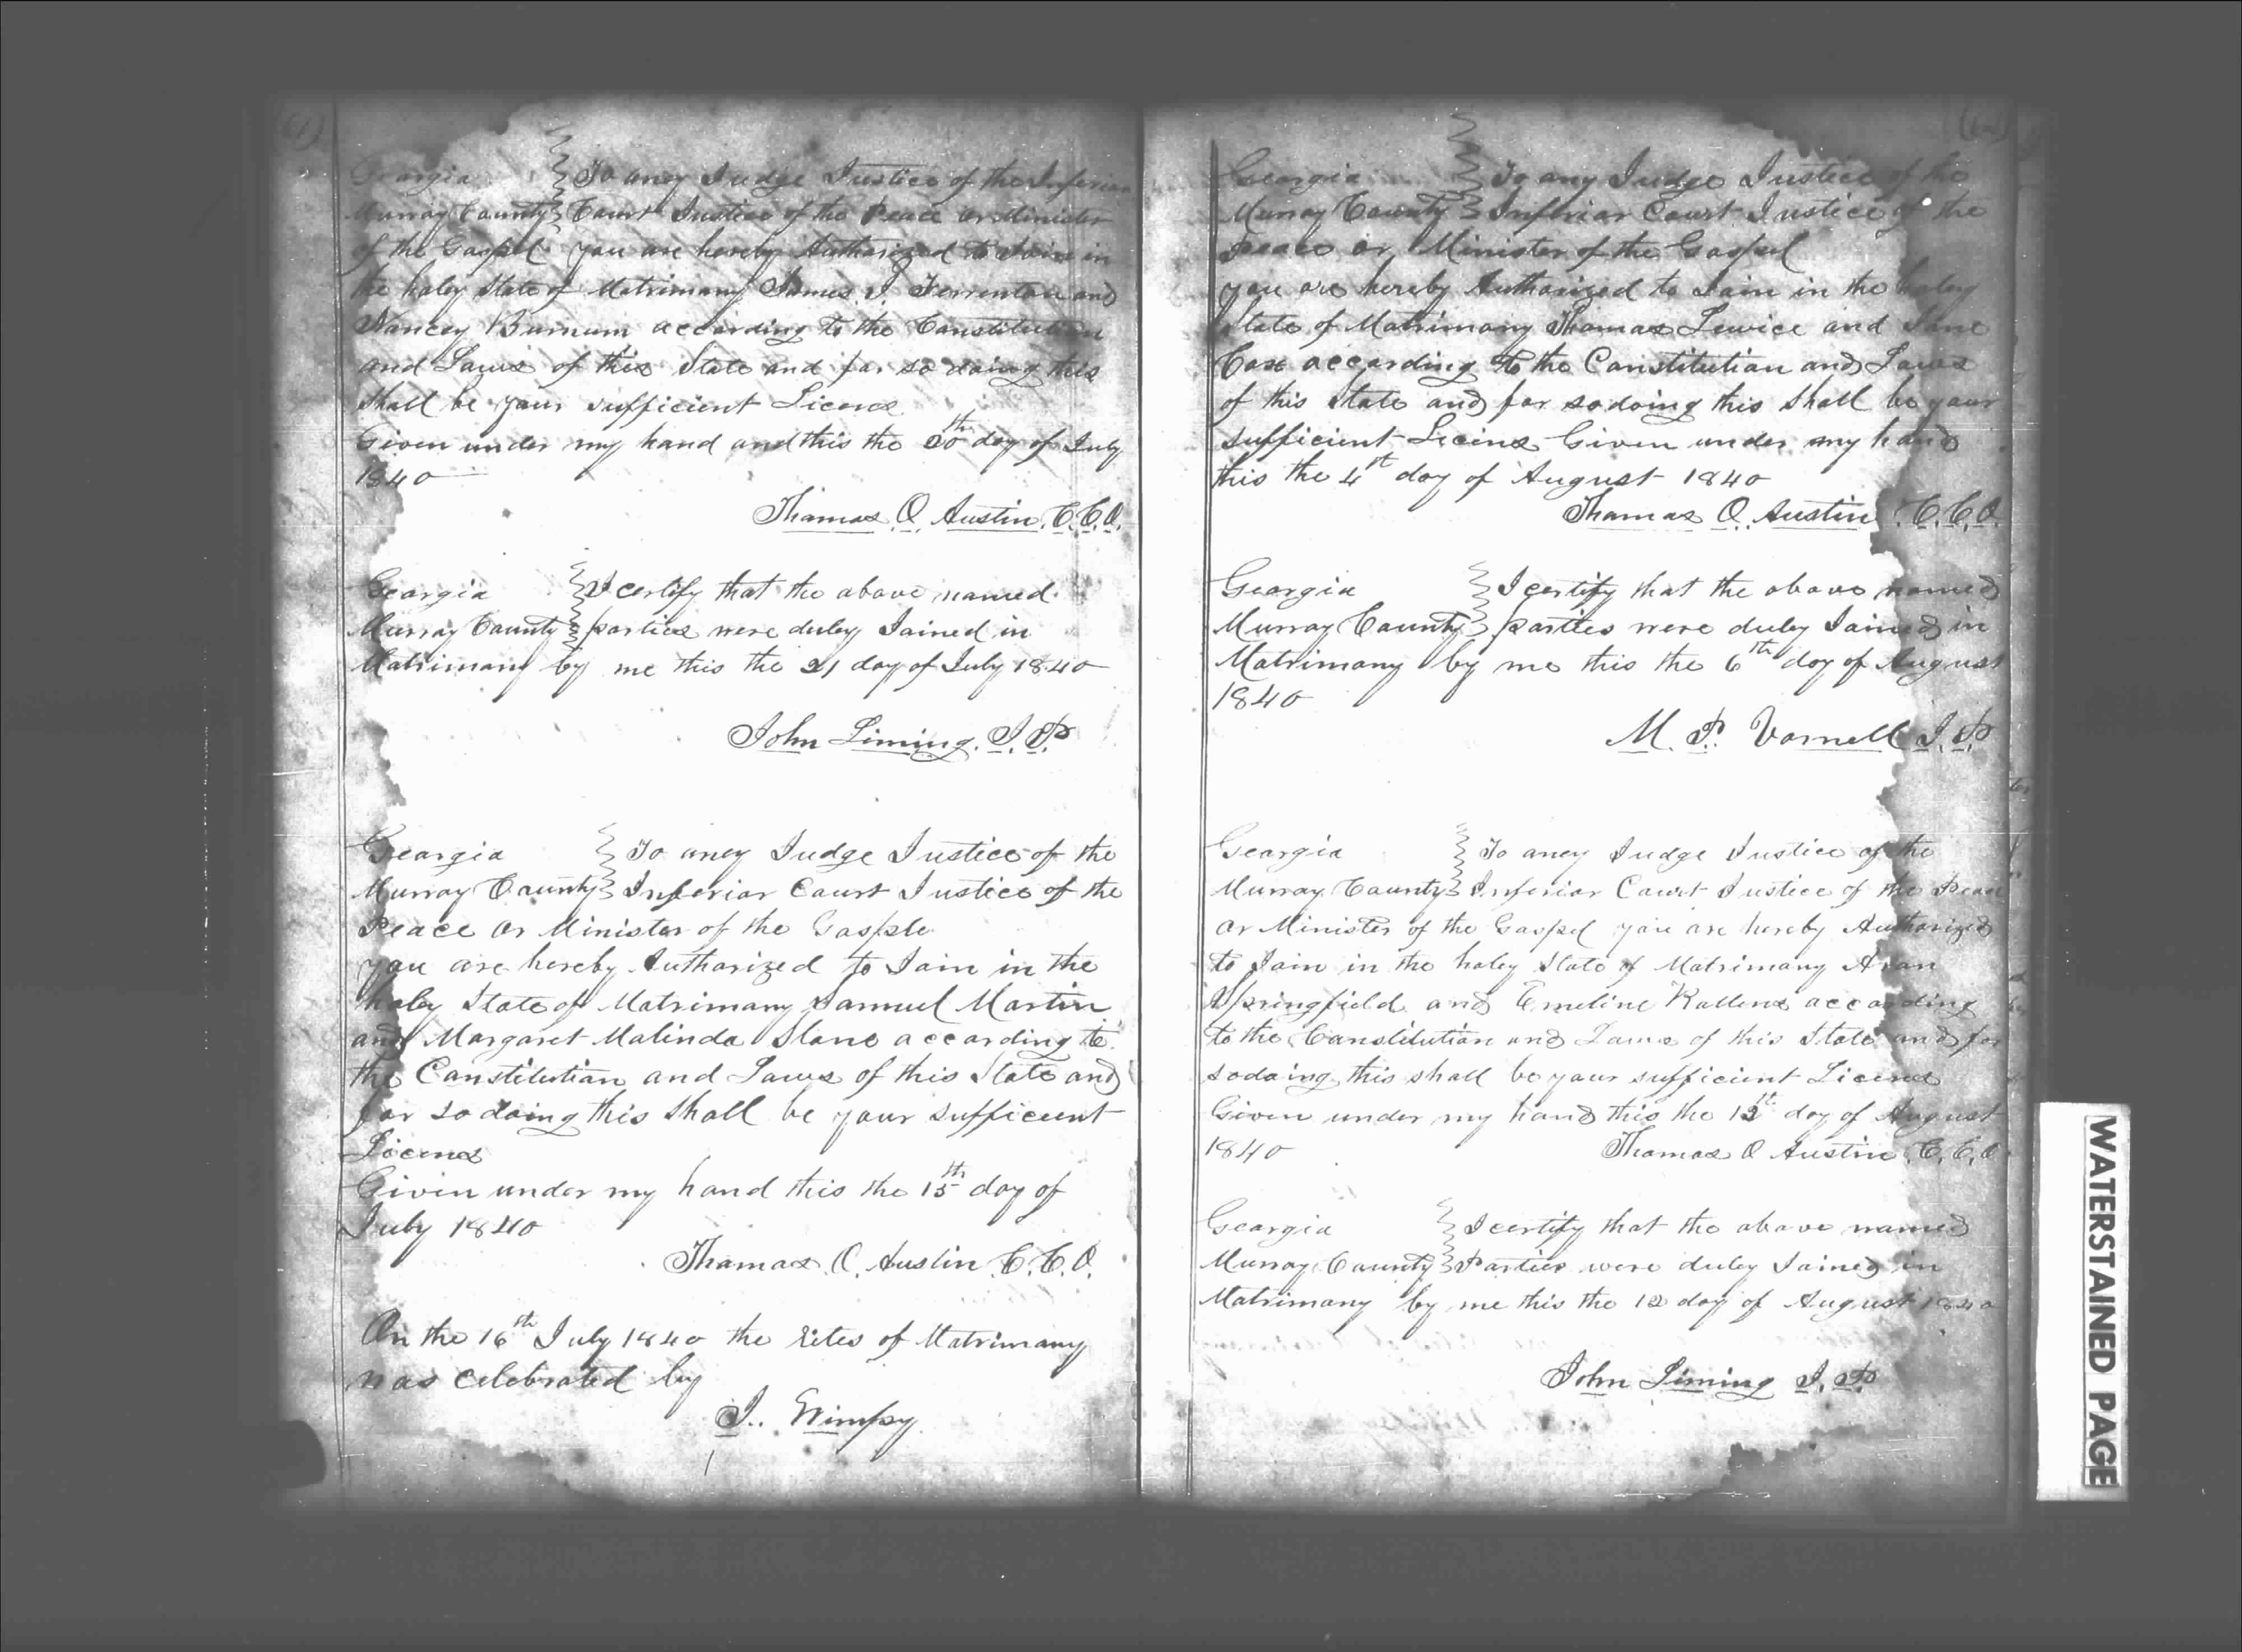 (61)
Georgia To aney Judge Justice of the Inferior
Murray County Court Justice of the Peace or Minister
of the Gospel you are hereby Authorized to Join in
the holey State of Matrimony James J. Terrenton and
Nancey Barnum according to the Constitution
and Laws of this State and for so doing this
Shall be your sufficient Licens
Given under my hand and this the 20th day of July
1840
Thomas Q. Austin. C.C.O.
Georgia I certify that the above named
Murray County parties were duley Joined in
Matrimony by me this the 21 day of July 1840
John Liming. J.P.
Georgia To aney Judge Justice of the
Murray County Inferior Court Justice of the
Peace or Minister of the Gosple
you are hereby Authorized to Join in the
holey State of Matrimony Samuel Martin
and Margaret Malinda Slone according to
the Constitution and Laws of this State and
for so doing this Shall be your sufficeint
Licens
Given under my hand this the 15th day of
July 1840
Thomas Q. Austin C.C.O.
On the 16th July 1840 the rites of Matrimony
was celebrated by
J. Wimpy
Georgia To any Judge Justice of the
Murray County Inferior Court Justice of the
Peace or Minister of the Gospel
you are hereby Authorized to Join in the holey
State of Matrimony Thomas Lewice and Jane
Cox according to the Constitution and Laws
of this State and for so doing this Shall be your
sufficient Licins Given under my hand
this the 4st day of August 1840
Thomas Q. Austin C.C.O.
Georgia I certify that the above named
Murray County parties were duley Joined in
Matrimony by me this the 6th day of August
1840
M. P. Varnell J.P
Georgia To aney Judge Justice of the
Murray County Inferior Court Justice of the Peace
or Minister of the Gospel you are hereby Authorized
to Join in the holey State of Matrimony Aran
Springfield and Emeline Rallens according
to the Constitution and Laws of this State and for
so doing this shall be your sufficient Licens
Given under my hand this the 12th day of August
1840 Thomas Q Austin C.C.O
Georgia I certify that the above named
Murray County Parties were duley Joined in
Matrimony by me this the 12 day of August 1840
John Liming J.P.
WATERSTAINED PAGE